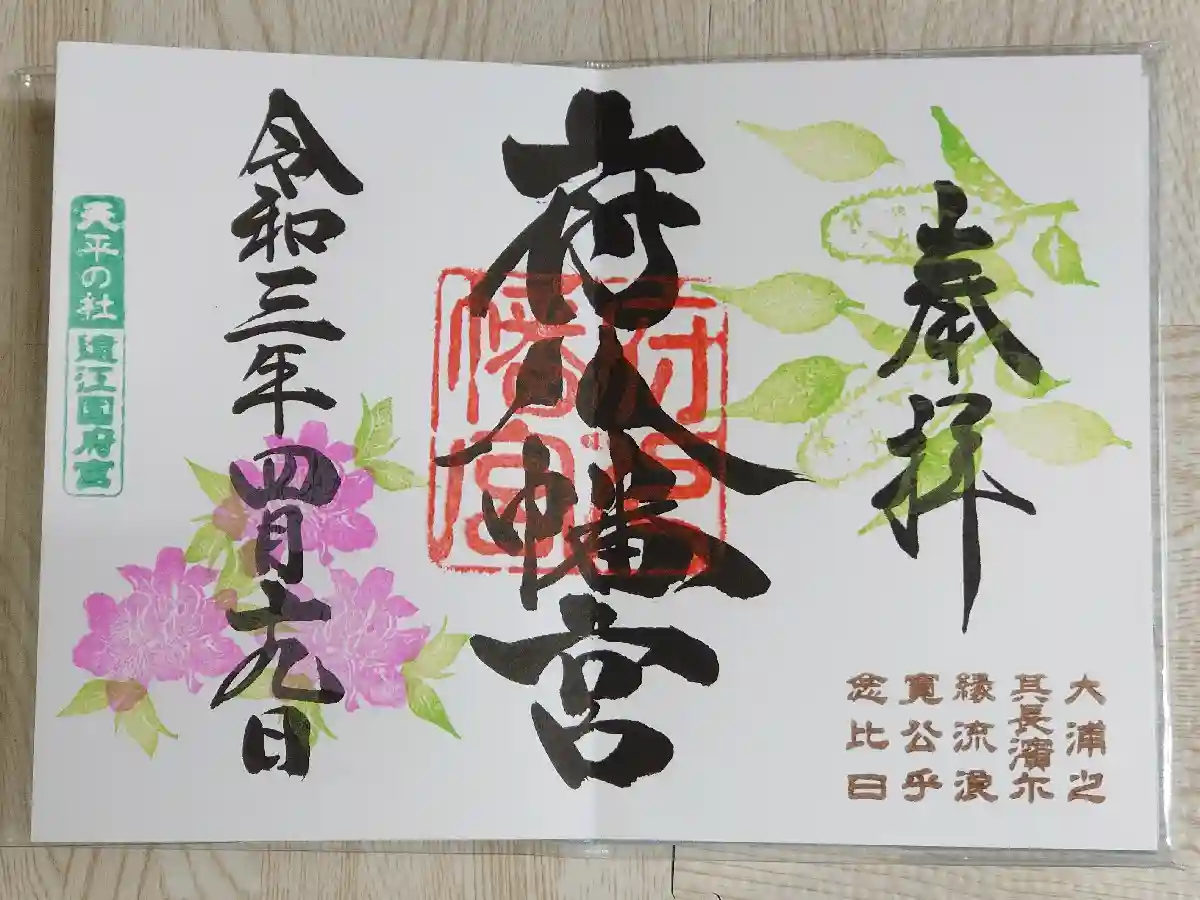 奉拝
大浦之
其長濱尓
縁流浪
寛公乎
念比日
府八幡宮
府八
幡宮
令和三年四月十九日
天平の社 遠江国府宮